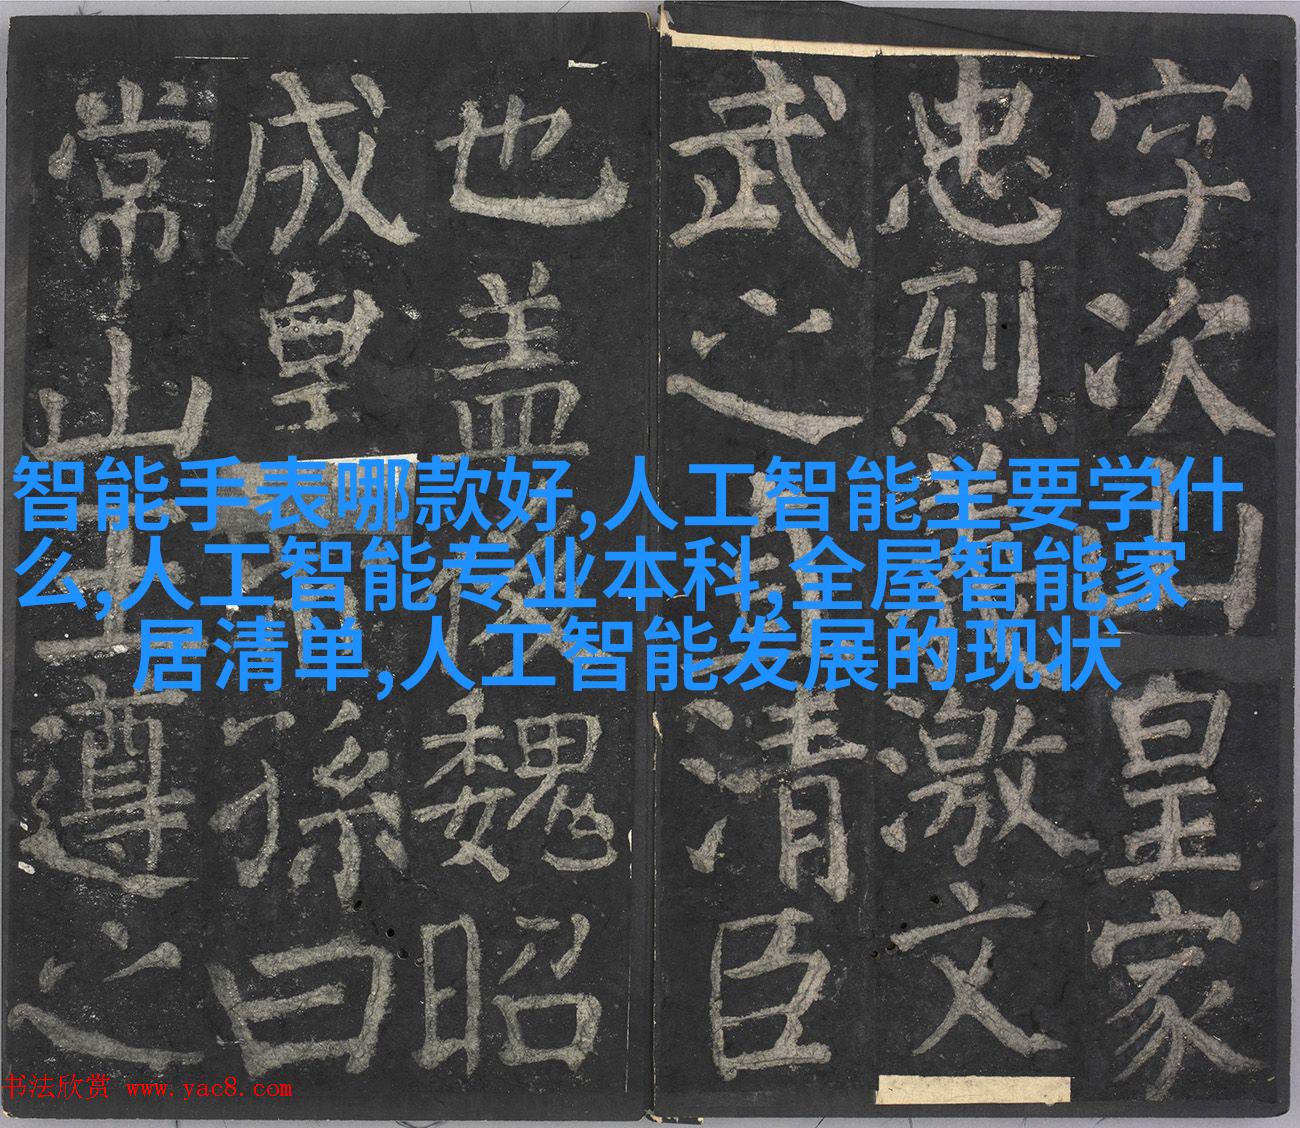 字次山皇家
忠烈義激文
武之清臣
也盖後魏昭
成皇孫曰
常山王遵之
智能手表哪款好,人工智能主要学什
么,人工智能专业本科,全屋智能家
居清单,人工智能发展的现状
书法欣赏 www.yac8.com